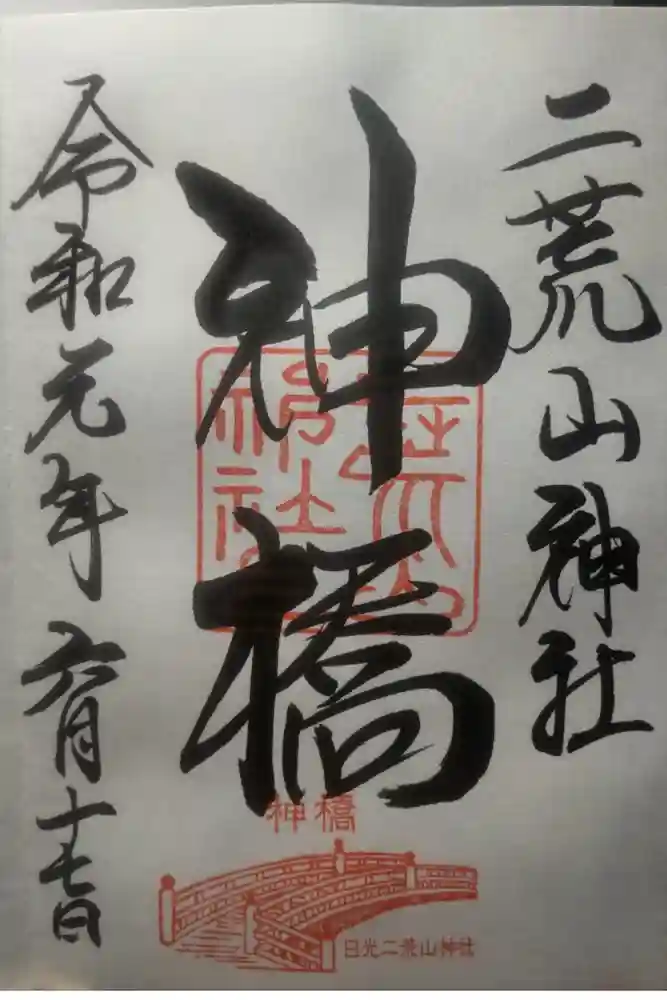 二荒山神社
神橋
令和元年六月十七日
二荒山神社
神橋
日光二荒山神社